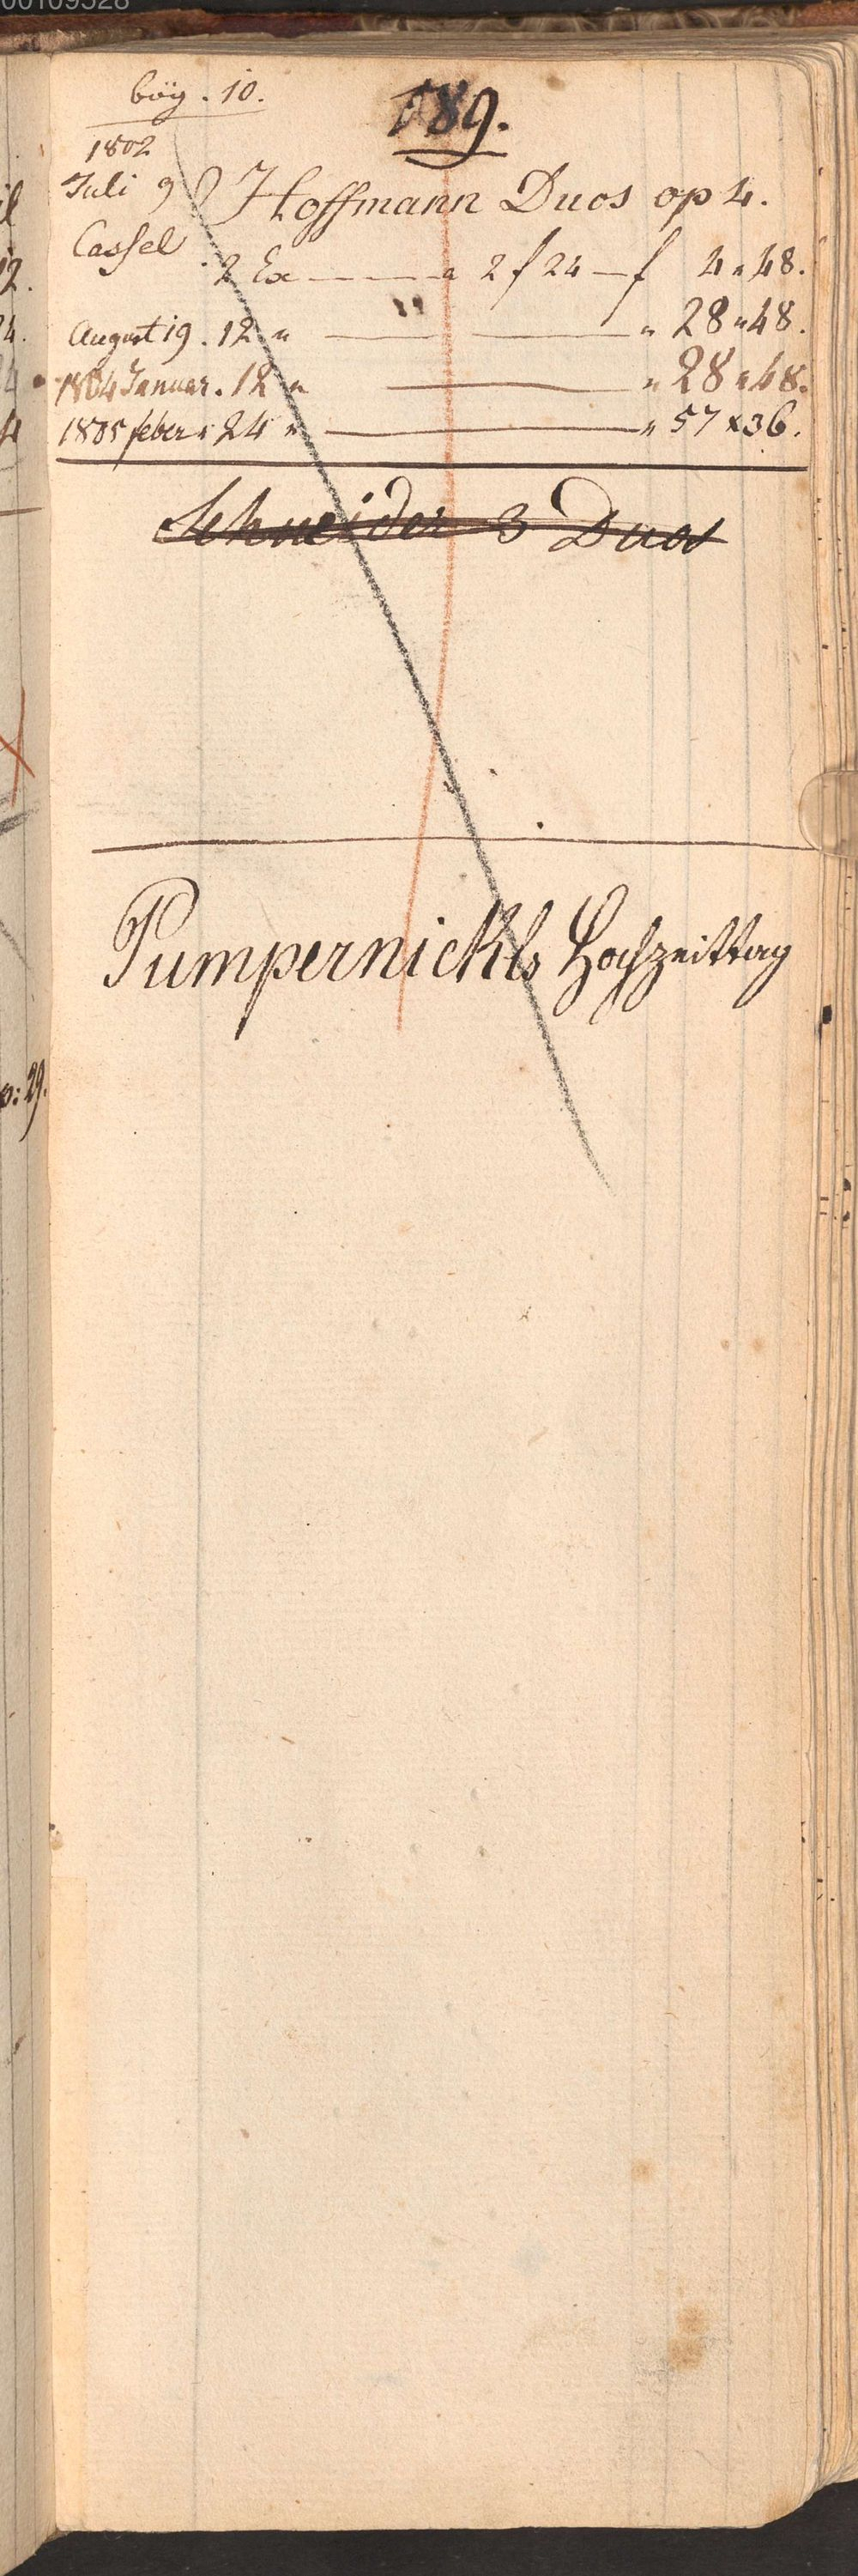 00109528
bög. 10.
189.
1802
Juli 9 Hoffmann Duos op 4.
Cassel
2 Ex — a 2 f 24 — f 4 " 48.
August 19. 12 " — " 28 " 48.
1804 Januar. 12 " — " 28 " 48.
1805 feber 24 " — " 57 x 36.
Schneider 3 Duos
Pumpernickls Hochzeittag